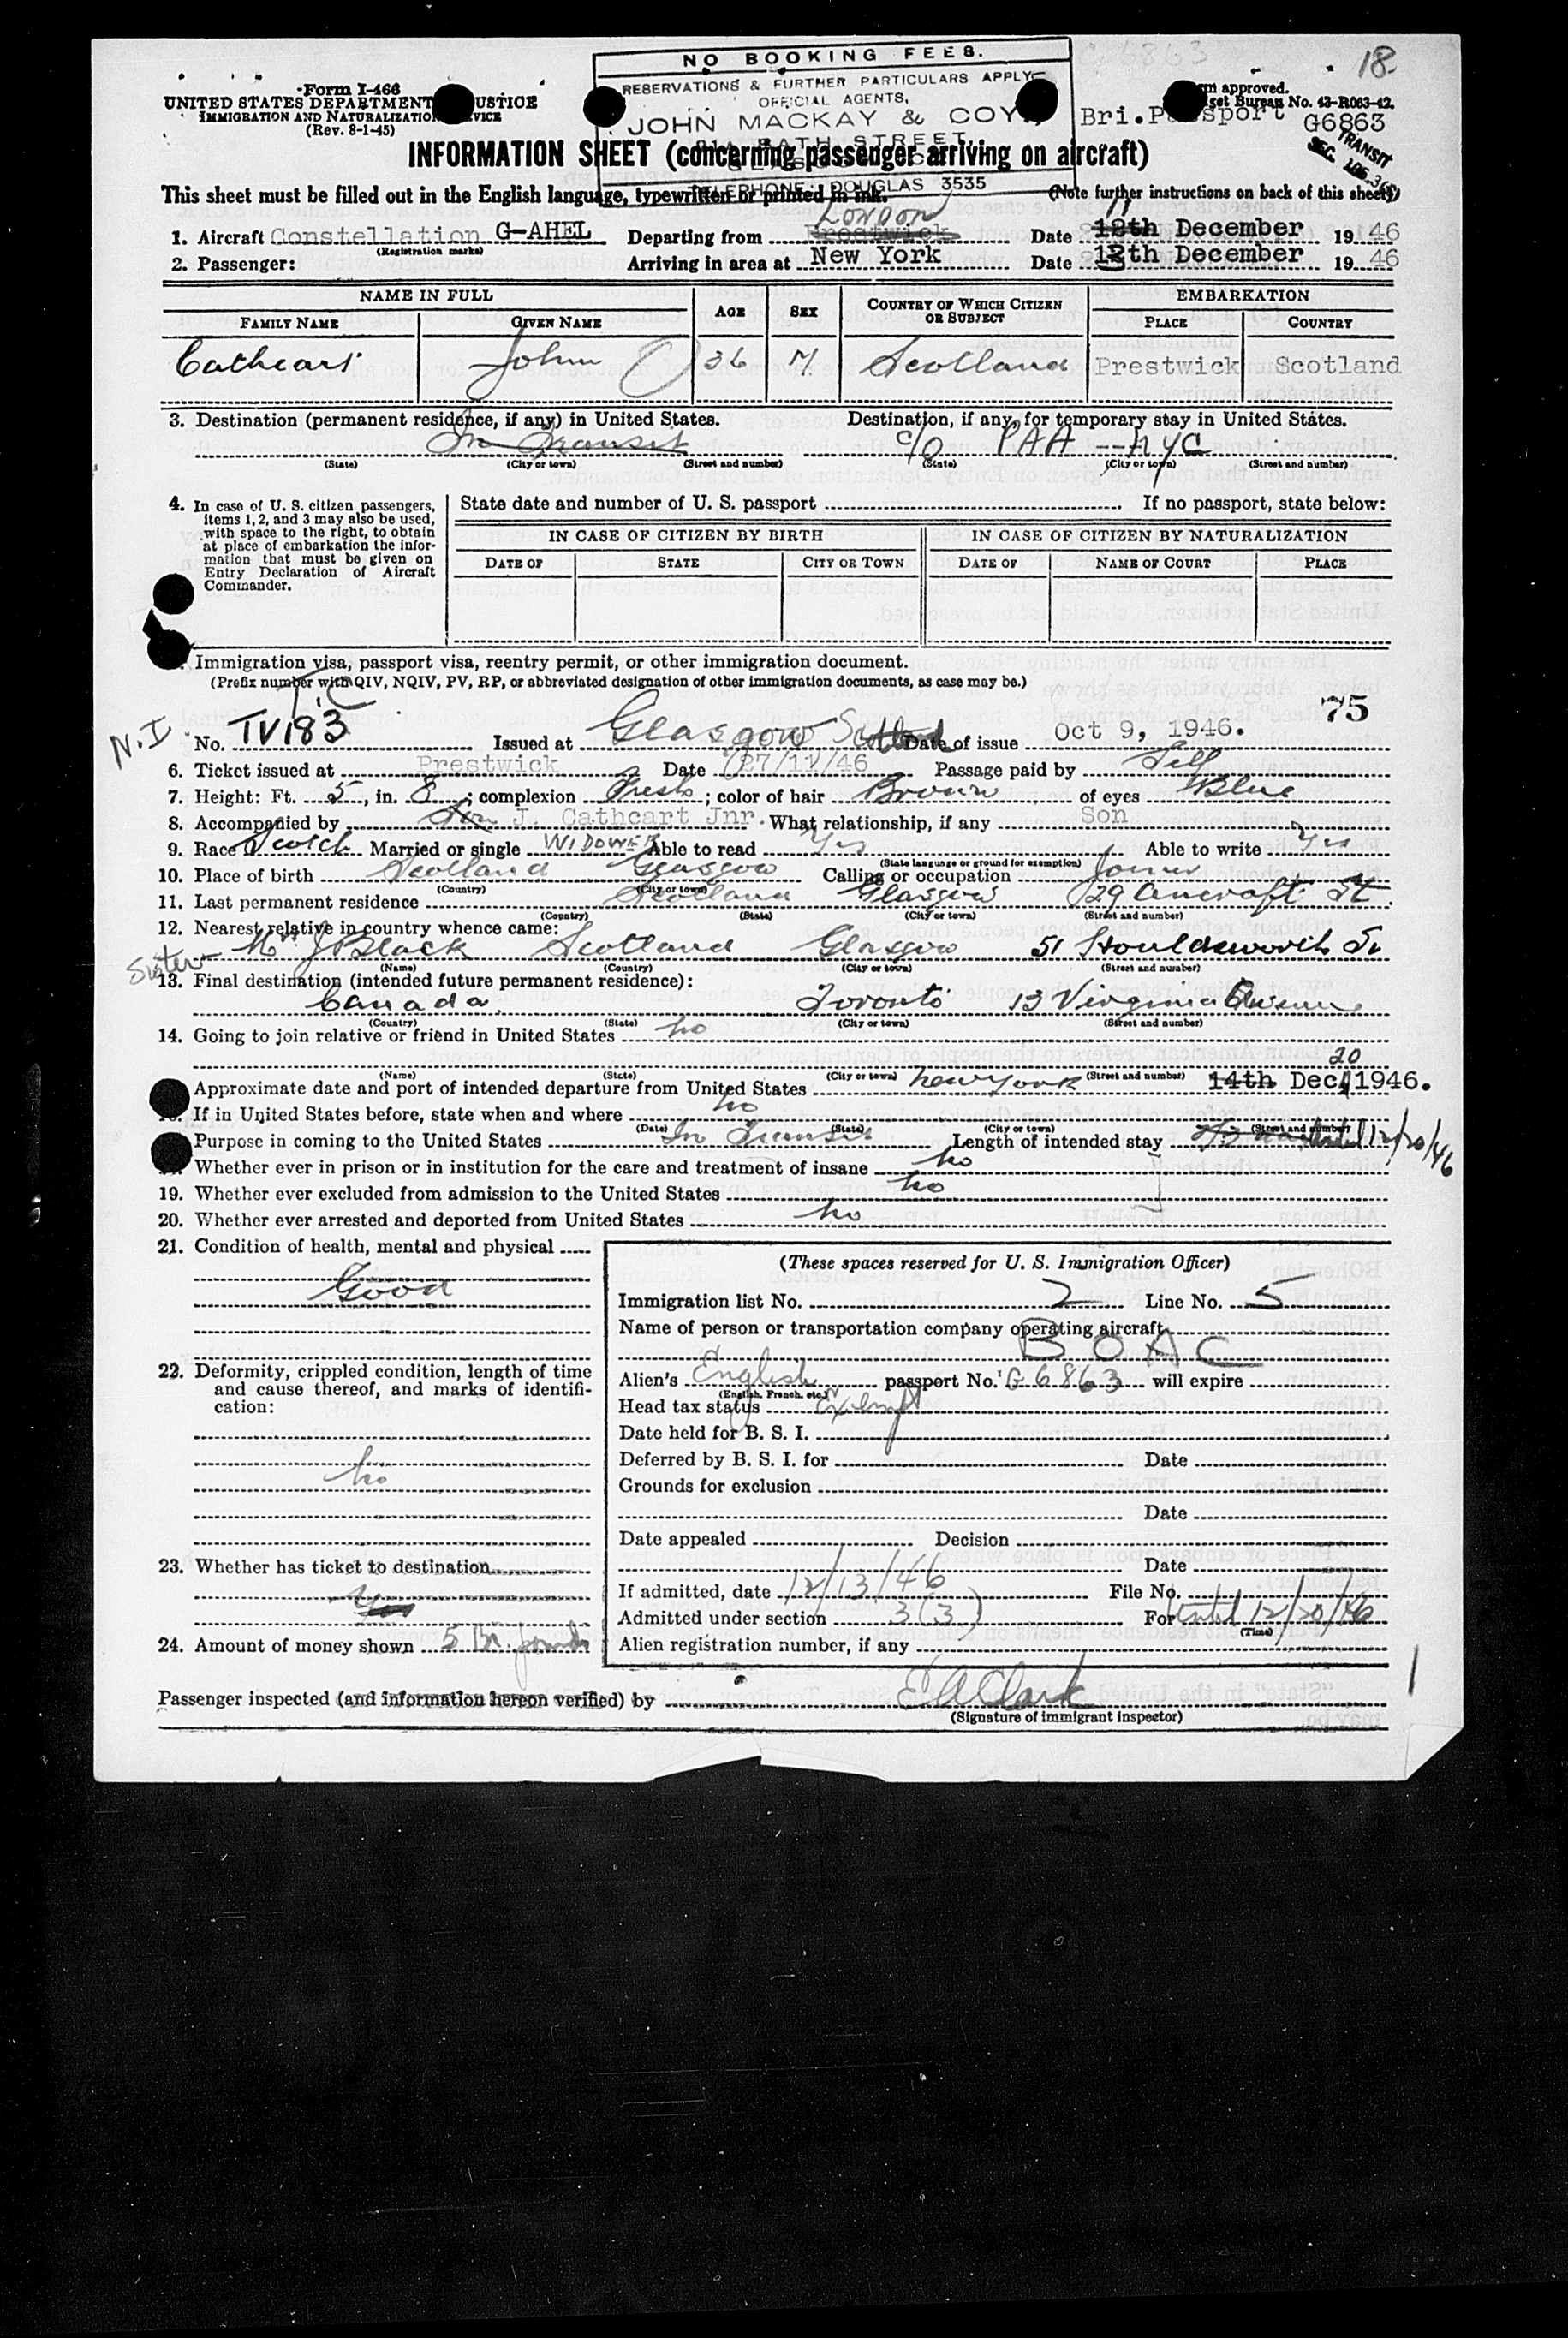 NO BOOKING FEES.
18
RESERVATIONS & FURTHER PARTICULARS APPLY
OFFICIAL AGENTS,
JOHN MACKAY & COY.
BATH STREET
TELEPHONE: DOUGLAS 3535
Form I-466
UNITED STATES DEPARTMENT USTICE
IMMIGRATION AND NATURALIZATION VICE
(Rev. 8-1-45)
m approved.
get Bureau No. 43-R063-42.
Bri.Passport G6863
TRANSIT
SEC.
INFORMATION SHEET (concerning passenger arriving on aircraft)
This sheet must be filled out in the English language, typewritten or printed in ink. (Note further instructions on back of this sheet)
London 11
1. Aircraft Constellation G-AHEL Departing from Prestwick Date 12th December 1946
(Registration marks)
2. Passenger: Arriving in area at New York Date 13th December 1946
NAME IN FULL AGE SEX COUNTRY OF WHICH CITIZEN OR SUBJECT EMBARKATION
FAMILY NAME GIVEN NAME PLACE COUNTRY
Cathcart John 36 M Scotland Prestwick Scotland
3. Destination (permanent residence, if any) in United States. Destination, if any, for temporary stay in United States.
In Transit c/o PAA — NYC
(State) (City or town) (Street and number) (State) (City or town) (Street and number)
4. In case of U. S. citizen passengers, items 1, 2, and 3 may also be used, with space to the right, to obtain at place of embarkation the information that must be given on Entry Declaration of Aircraft Commander.
State date and number of U. S. passport If no passport, state below:
IN CASE OF CITIZEN BY BIRTH IN CASE OF CITIZEN BY NATURALIZATION
DATE OF STATE CITY OR TOWN DATE OF NAME OF COURT PLACE
Immigration visa, passport visa, reentry permit, or other immigration document.
(Prefix number with QIV, NQIV, PV, RP, or abbreviated designation of other immigration documents, as case may be.)
T.C
75
N.I.
No. TV183 Issued at Glasgow Scotland Date of issue Oct 9, 1946.
6. Ticket issued at Prestwick Date 27/11/46 Passage paid by Self
7. Height: Ft. 5, in. 8; complexion Fresh; color of hair Brown of eyes Blue
8. Accompanied by Son J. Cathcart Jnr. What relationship, if any Son
9. Race Scotch Married or single WIDOWER Able to read Yes Able to write Yes
(State language or ground for exemption)
10. Place of birth Scotland Glasgow Calling or occupation Joiner
(Country) (City or town)
11. Last permanent residence Scotland Glasgow 29 Ancroft St.
(Country) (State) (City or town) (Street and number)
12. Nearest relative in country whence came:
Sister Mrs J Black Scotland Glasgow 51 Houldsworth St
(Name) (Country) (City or town) (Street and number)
13. Final destination (intended future permanent residence):
Canada. Toronto 13 Virginia Avenue
(Country) (State) (City or town) (Street and number)
14. Going to join relative or friend in United States No
20
(Name) (State) (City or town) (Street and number)
Approximate date and port of intended departure from United States New York 14th Dec. 1946.
If in United States before, state when and where No
(Date) (State) (City or town) (Street and number)
Purpose in coming to the United States In Transit Length of intended stay until 12/20/46
Whether ever in prison or in institution for the care and treatment of insane No
19. Whether ever excluded from admission to the United States No
20. Whether ever arrested and deported from United States No
21. Condition of health, mental and physical
Good
22. Deformity, crippled condition, length of time and cause thereof, and marks of identification:
No
23. Whether has ticket to destination
Yes
24. Amount of money shown 5 Br. pounds
(These spaces reserved for U. S. Immigration Officer)
Immigration list No. 2 Line No. 5
Name of person or transportation company operating aircraft
BOAC
Alien's English passport No. G6863 will expire
(English, French, etc.)
Head tax status Exempt
Date held for B. S. I.
Deferred by B. S. I. for Date
Grounds for exclusion
Date
Date appealed Decision
Date
If admitted, date 12/13/46 File No.
Admitted under section 3(3) For until 12/20/46
(Time)
Alien registration number, if any
Passenger inspected (and information hereon verified) by E A Clark
(Signature of immigrant inspector)